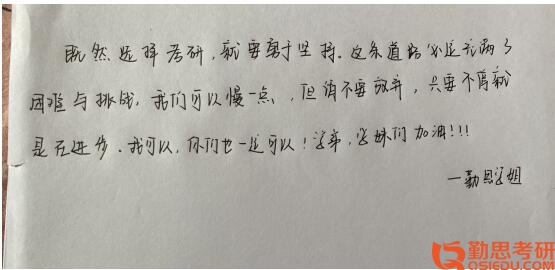 既然选择考研,就要勇于坚持。这条道路必定充满了
困难与挑战,我们可以慢一点,但请不要放弃,只要不停就
是在进步.我可以,你们也一定可以!学弟,学妹们加油!!!
—勤思学姐
勤思考研
QSIEDU.COM